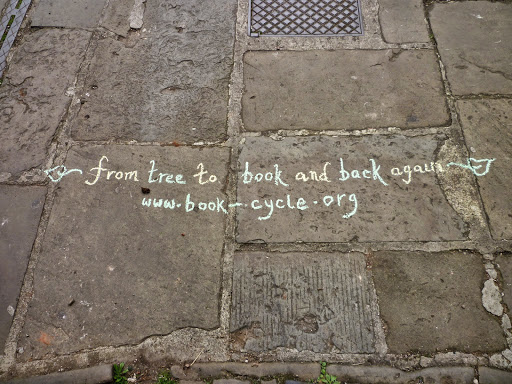 from tree to book and back again
www.book-cycle.org